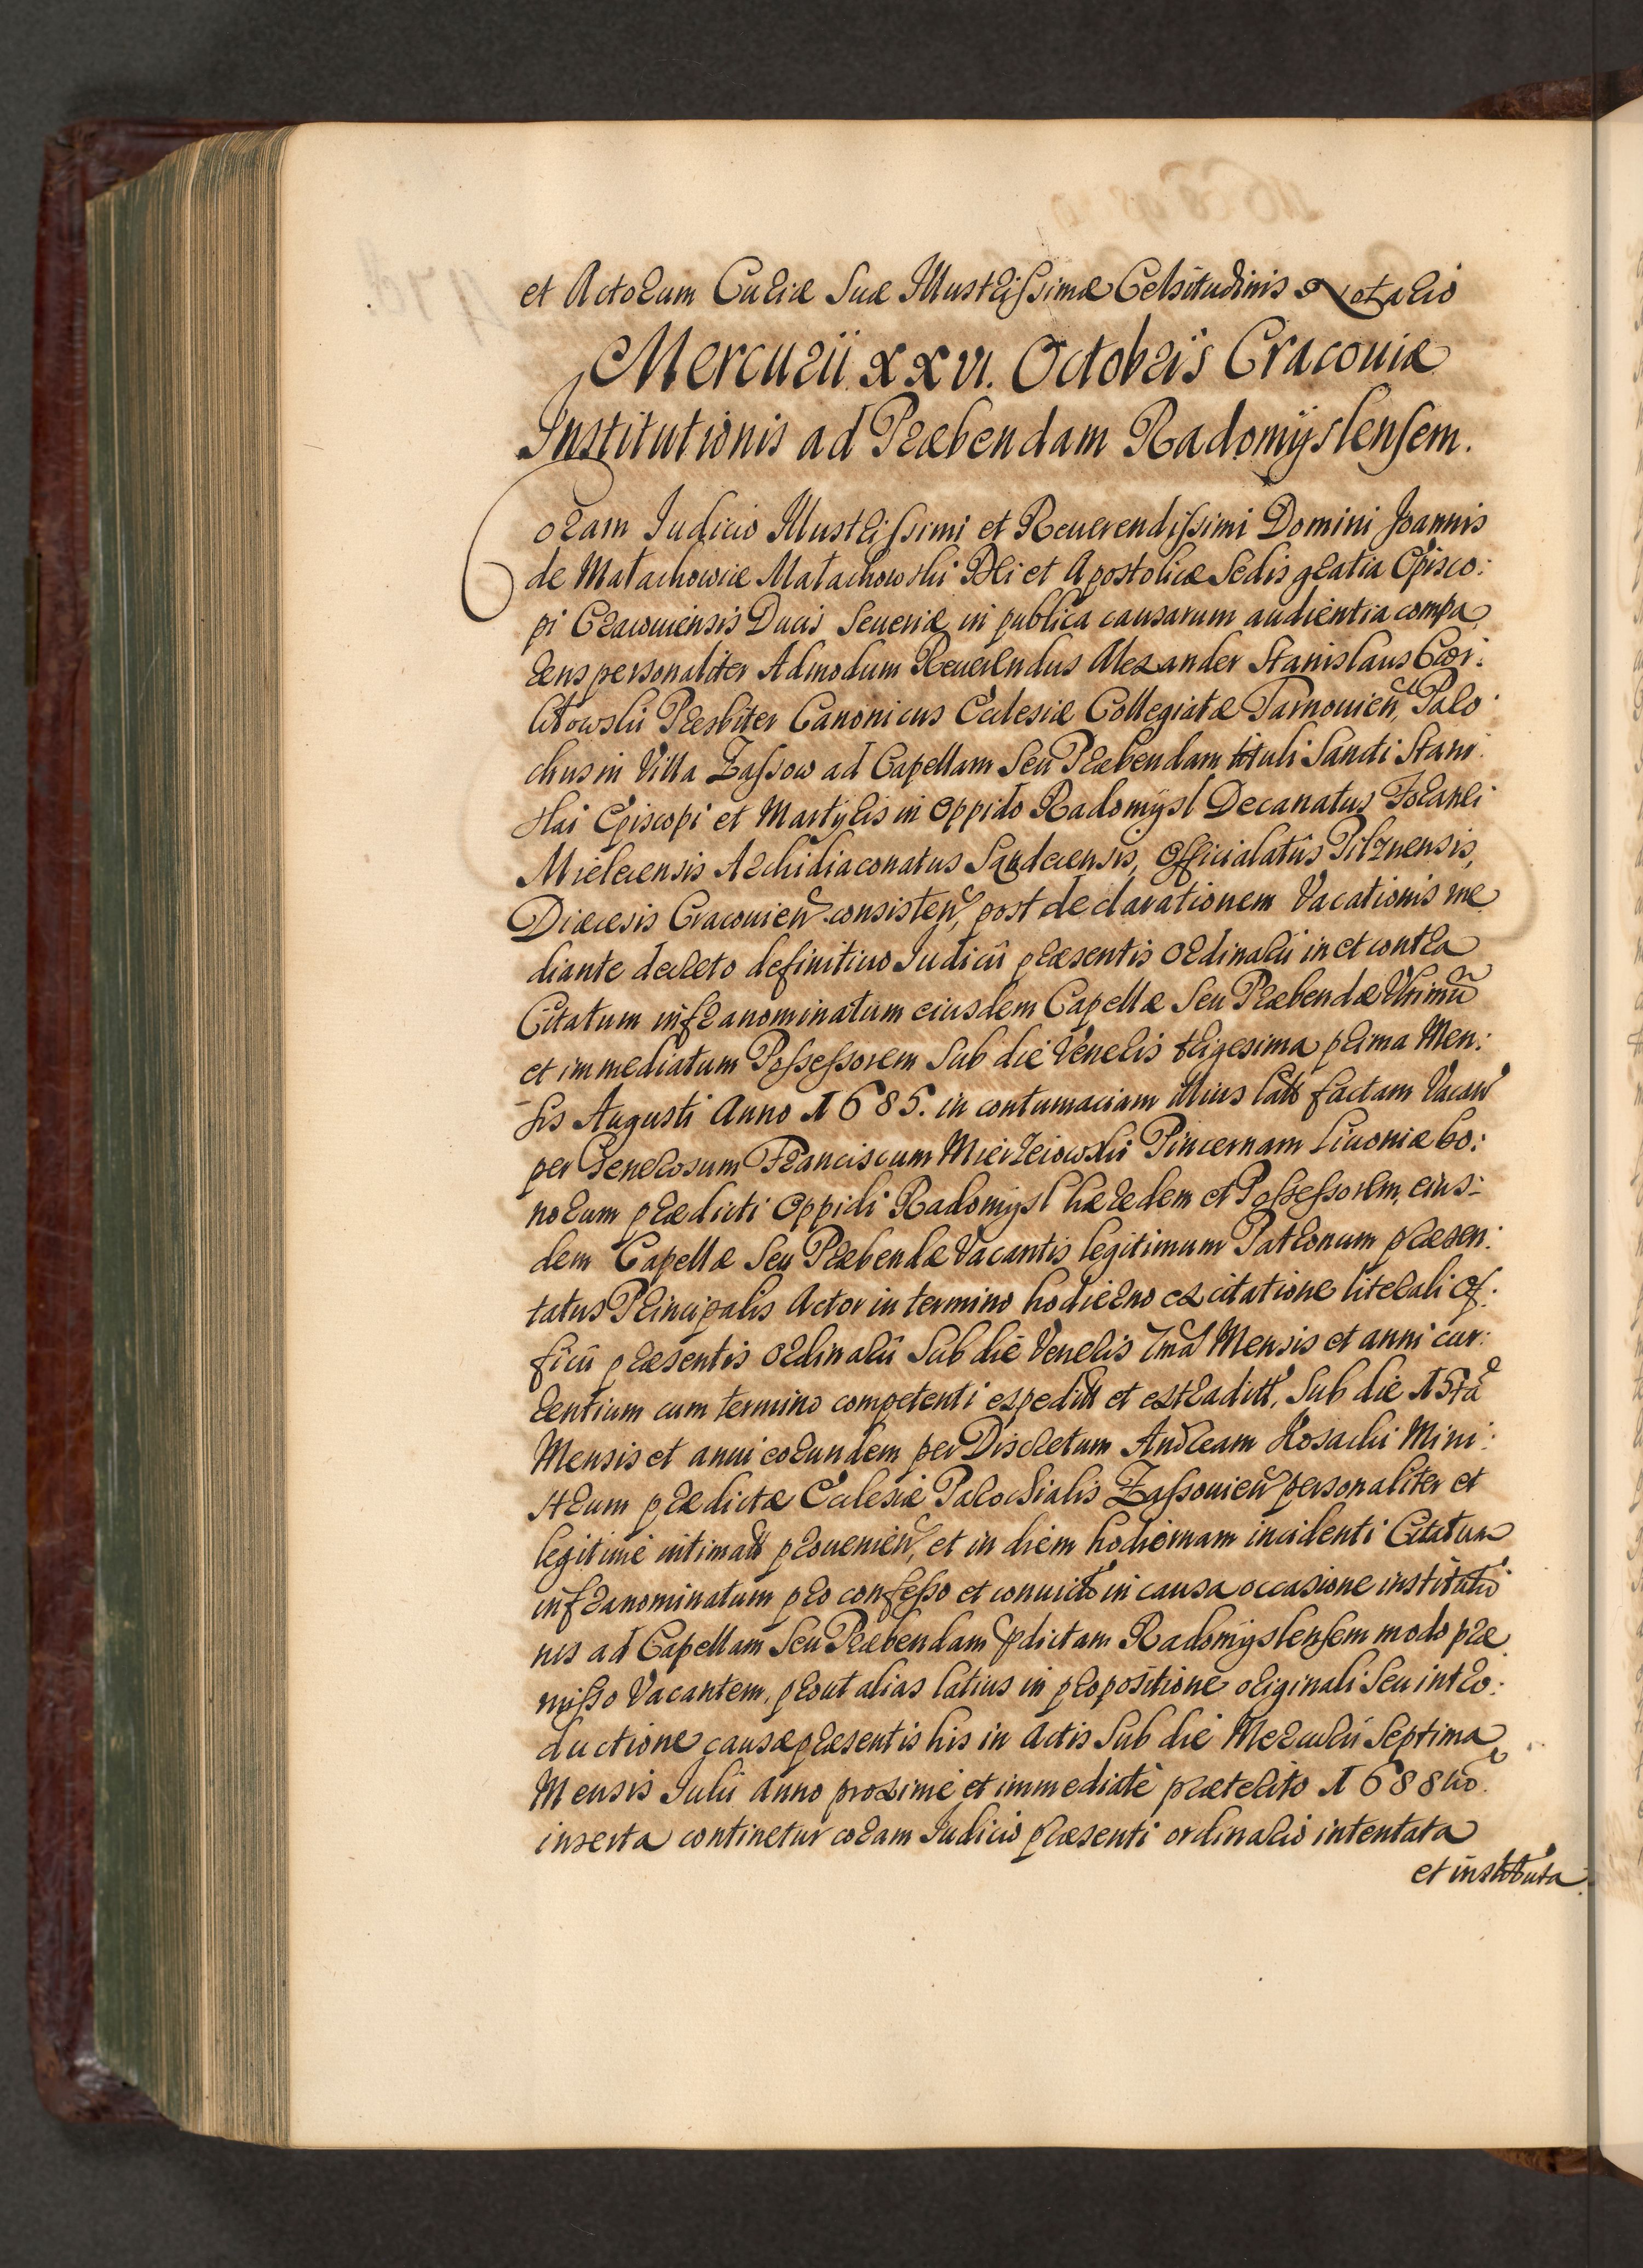 et Actorum Curiæ Suæ Illustrissimæ Celsitudinis Notario
Mercurii xxvi. Octobris Cracouiæ
Institutionis ad Præbendam Radomyslensem.
Coram Iudicio Illustrissimi et Reuerendissimi Domini Joannis
de Małachowice Małachowski Dei et Apostolicæ Sedis gratia Episco:
pi Cracouiensis Ducis Seueriæ in publica causarum audientia compa
rens personaliter Admodum Reuerendus Alexander Stanislaus
Presbiter Canonicus Ecclesiæ Collegiatæ Tarnouien, Paro
chus in Villa Zassow ad Capellam Seu Præbendam tituli Sancti Stani
slai Episcopi et Martyris in Oppido Radomysl Decanatus Foranei
Mielecensis Archidiaconatus Sandecensis, Officialatus Pilznensis,
Diæcesis Cracouien consisten, post declarationem Vacationis me
diante decreto definitiuo Iudicii præsentis Ordinarii in et contra
Citatum infranominatum eiusdem Capellæ Seu Præbendæ Vltimũ
et immediatum Possessorem Sub die Veneris trigesima prima Men:
sis Augusti Anno 1685. in contumaciam illius factam
per Generosum Franciscum Pincernam Liuoniæ bo:
norum prædicti Oppidi Radomysl hæredem et Possessorem, eius:
dem Capellæ Seu Præbendæ Vacantis legitimum Patronum præsen:
tatus Principalis Actor in termino hodierno ex citatione literali Of:
ficii præsentis Ordinarii Sub die Veneris 7mã Mensis et anni cur:
rentium cum termino competenti expeditt et extraditt, Sub die 15tã
Mensis et anni eorundem per Discretum Andream Kosacki Mini:
strum prædictæ Ecclesiæ Parochialis Zassouien personaliter et
legitime intimatt prouenien, et in diem hodiernam incidenti Citatum
infranominatum pro confesso et conuicto in causa occasione institutio
nis ad Capellam Seu Præbendam pdictam Radomyslensem modo præ
misso Vacantem, prout alias latius in propositione originali Seu intro:
ductione causæ præsentis his in Actis Sub die Mercurii Septima
Mensis Iulii Anno proxime et immediate præterito 1688uo
inserta continetur coram Iudicio præsenti ordinario intentata
et instituta